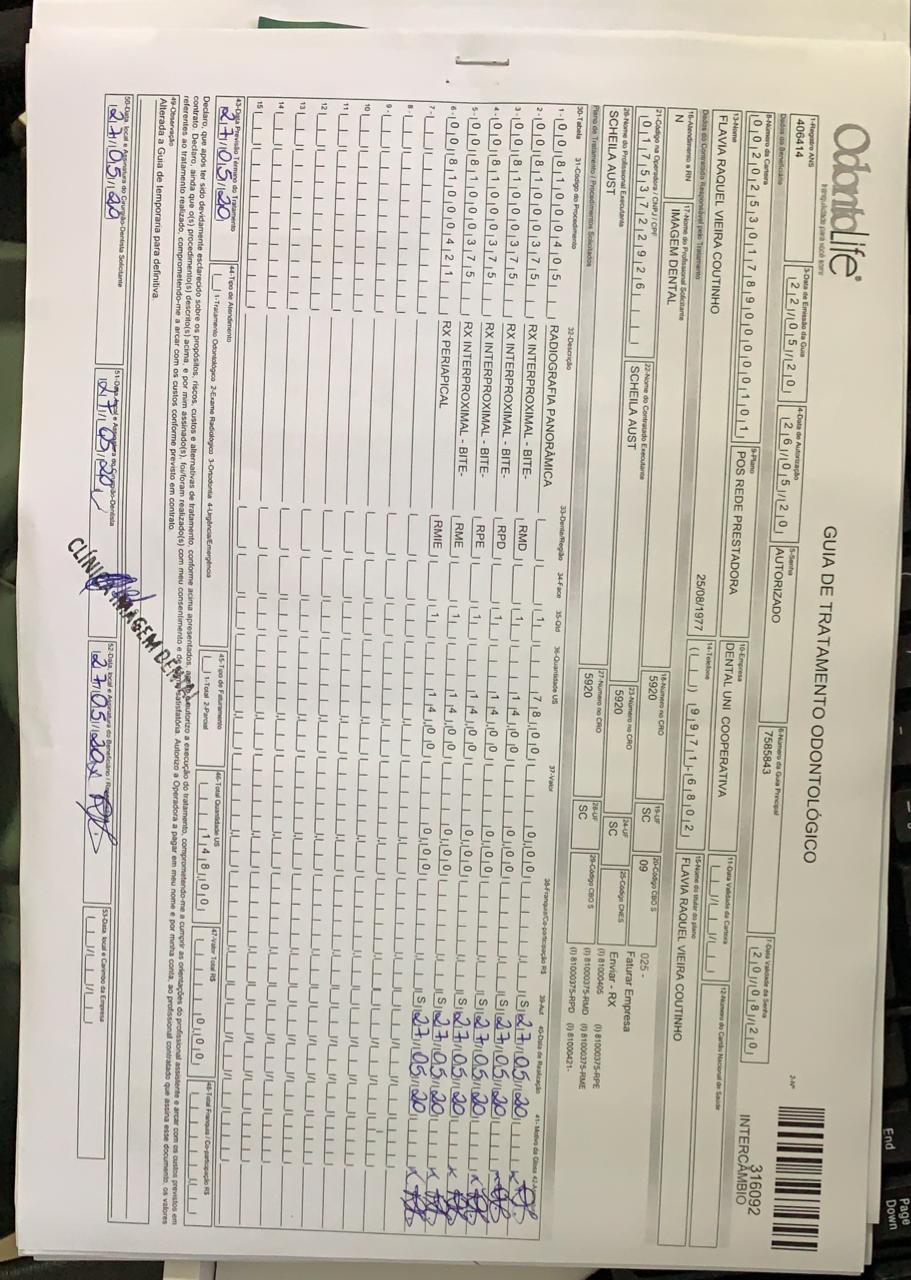 OdontoLife®
tranquilidade para você sorrir
GUIA DE TRATAMENTO ODONTOLÓGICO
2-Nº
316092
INTERCÂMBIO
1-Registro ANS
406414
3-Data de Emissão da Guia
22/05/20
4-Data de Autorização
26/05/20
5-Senha
AUTORIZADO
6-Número da Guia Principal
7585843
7-Data Validade da Senha
20/08/20
Dados do Beneficiário
8-Número da Carteira
00202530178900000101
9-Plano
POS REDE PRESTADORA
10-Empresa
DENTAL UNI COOPERATIVA
11-Data Validade da Carteira
12-Número do Cartão Nacional de Saúde
13-Nome
FLAVIA RAQUEL VIEIRA COUTINHO
25/08/1977
14-Telefone
( ) 99971-6802
15-Nome do titular do plano
FLAVIA RAQUEL VIEIRA COUTINHO
Dados do Contratado Responsável pelo Tratamento
16-Atendimento a RN
N
17-Nome do Profissional Solicitante
IMAGEM DENTAL
18-Número no CRO
5920
19-UF
SC
20-Código CBO S
09
025 -
21-Código na Operadora / CNPJ / CPF
01753722926
22-Nome do Contratado Executante
SCHEILA AUST
23-Número no CRO
5920
24-UF
SC
25-Código CNES
Faturar Empresa
Enviar - RX
26-Nome do Profissional Executante
SCHEILA AUST
27-Número no CRO
5920
28-UF
SC
29-Código CBO S
(I) 81000405 (I) 81000375-RPE
(I) 81000375-RMD (I) 81000375-RME
(I) 81000375-RPD (I) 81000421-
Plano de Tratamento / Procedimentos Solicitados
30-Tabela 31-Código do Procedimento 32-Descrição 33-Dente/Região 34-Face 35-Qtd 36-Quantidade US 37-Valor 38-Franquia/Co-participação R$ 39-Aut 40-Data de Realização 41- Motivo da Glosa
1- 00 81000405 RADIOGRAFIA PANORÂMICA 1 78,00 0,00 S 27/05/20
2- 00 81000375 RX INTERPROXIMAL - BITE- RMD 1 14,00 0,00 S 27/05/20
3- 00 81000375 RX INTERPROXIMAL - BITE- RPD 1 14,00 0,00 S 27/05/20
4- 00 81000375 RX INTERPROXIMAL - BITE- RPE 1 14,00 0,00 S 27/05/20
5- 00 81000375 RX INTERPROXIMAL - BITE- RME 1 14,00 0,00 S 27/05/20
6- 00 81000421 RX PERIAPICAL RMIE 1 14,00 0,00 S 27/05/20
7-
8-
9-
10
11
12
13
14
15
43-Data Previsão Término do Tratamento
27/05/20
44-Tipo de Atendimento
1-Tratamento Odontológico 2-Exame Radiológico 3-Ortodontia 4-Urgência/Emergência
45-Tipo de Faturamento
1-Total 2-Parcial
46-Total Quantidade US
148,00
47-Valor Total R$
0,00
48-Total Franquia / Co-participação R$
Declaro, que após ter sido devidamente esclarecido sobre os propósitos, riscos, custos e alternativas de tratamento, conforme acima apresentados, autorizo a execução do tratamento, comprometendo-me a cumprir as orientações do profissional assistente e arcar com os custos previstos em
contrato. Declaro, ainda que o(s) procedimento(s) descrito(s) acima, e por mim assinado(s), foi/foram realizado(s) com meu consentimento e de forma satisfatória. Autorizo a Operadora a pagar em meu nome e por minha conta, ao profissional contratado que assina esse documento, os valores
referentes ao tratamento realizado, comprometendo-me a arcar com os custos conforme previsto em contrato.
49-Observação
Alterada a Guia de temporaria para definitiva.
50-Data, local e Assinatura do Cirurgião-Dentista Solicitante
27/05/20
51-Data, local e Assinatura do Cirurgião-Dentista
27/05/20
CLÍNICA IMAGEM DENTAL
52-Data, local e Assinatura do Beneficiário
27/05/20
53-Data, local e Carimbo da Empresa
End
Page
Down